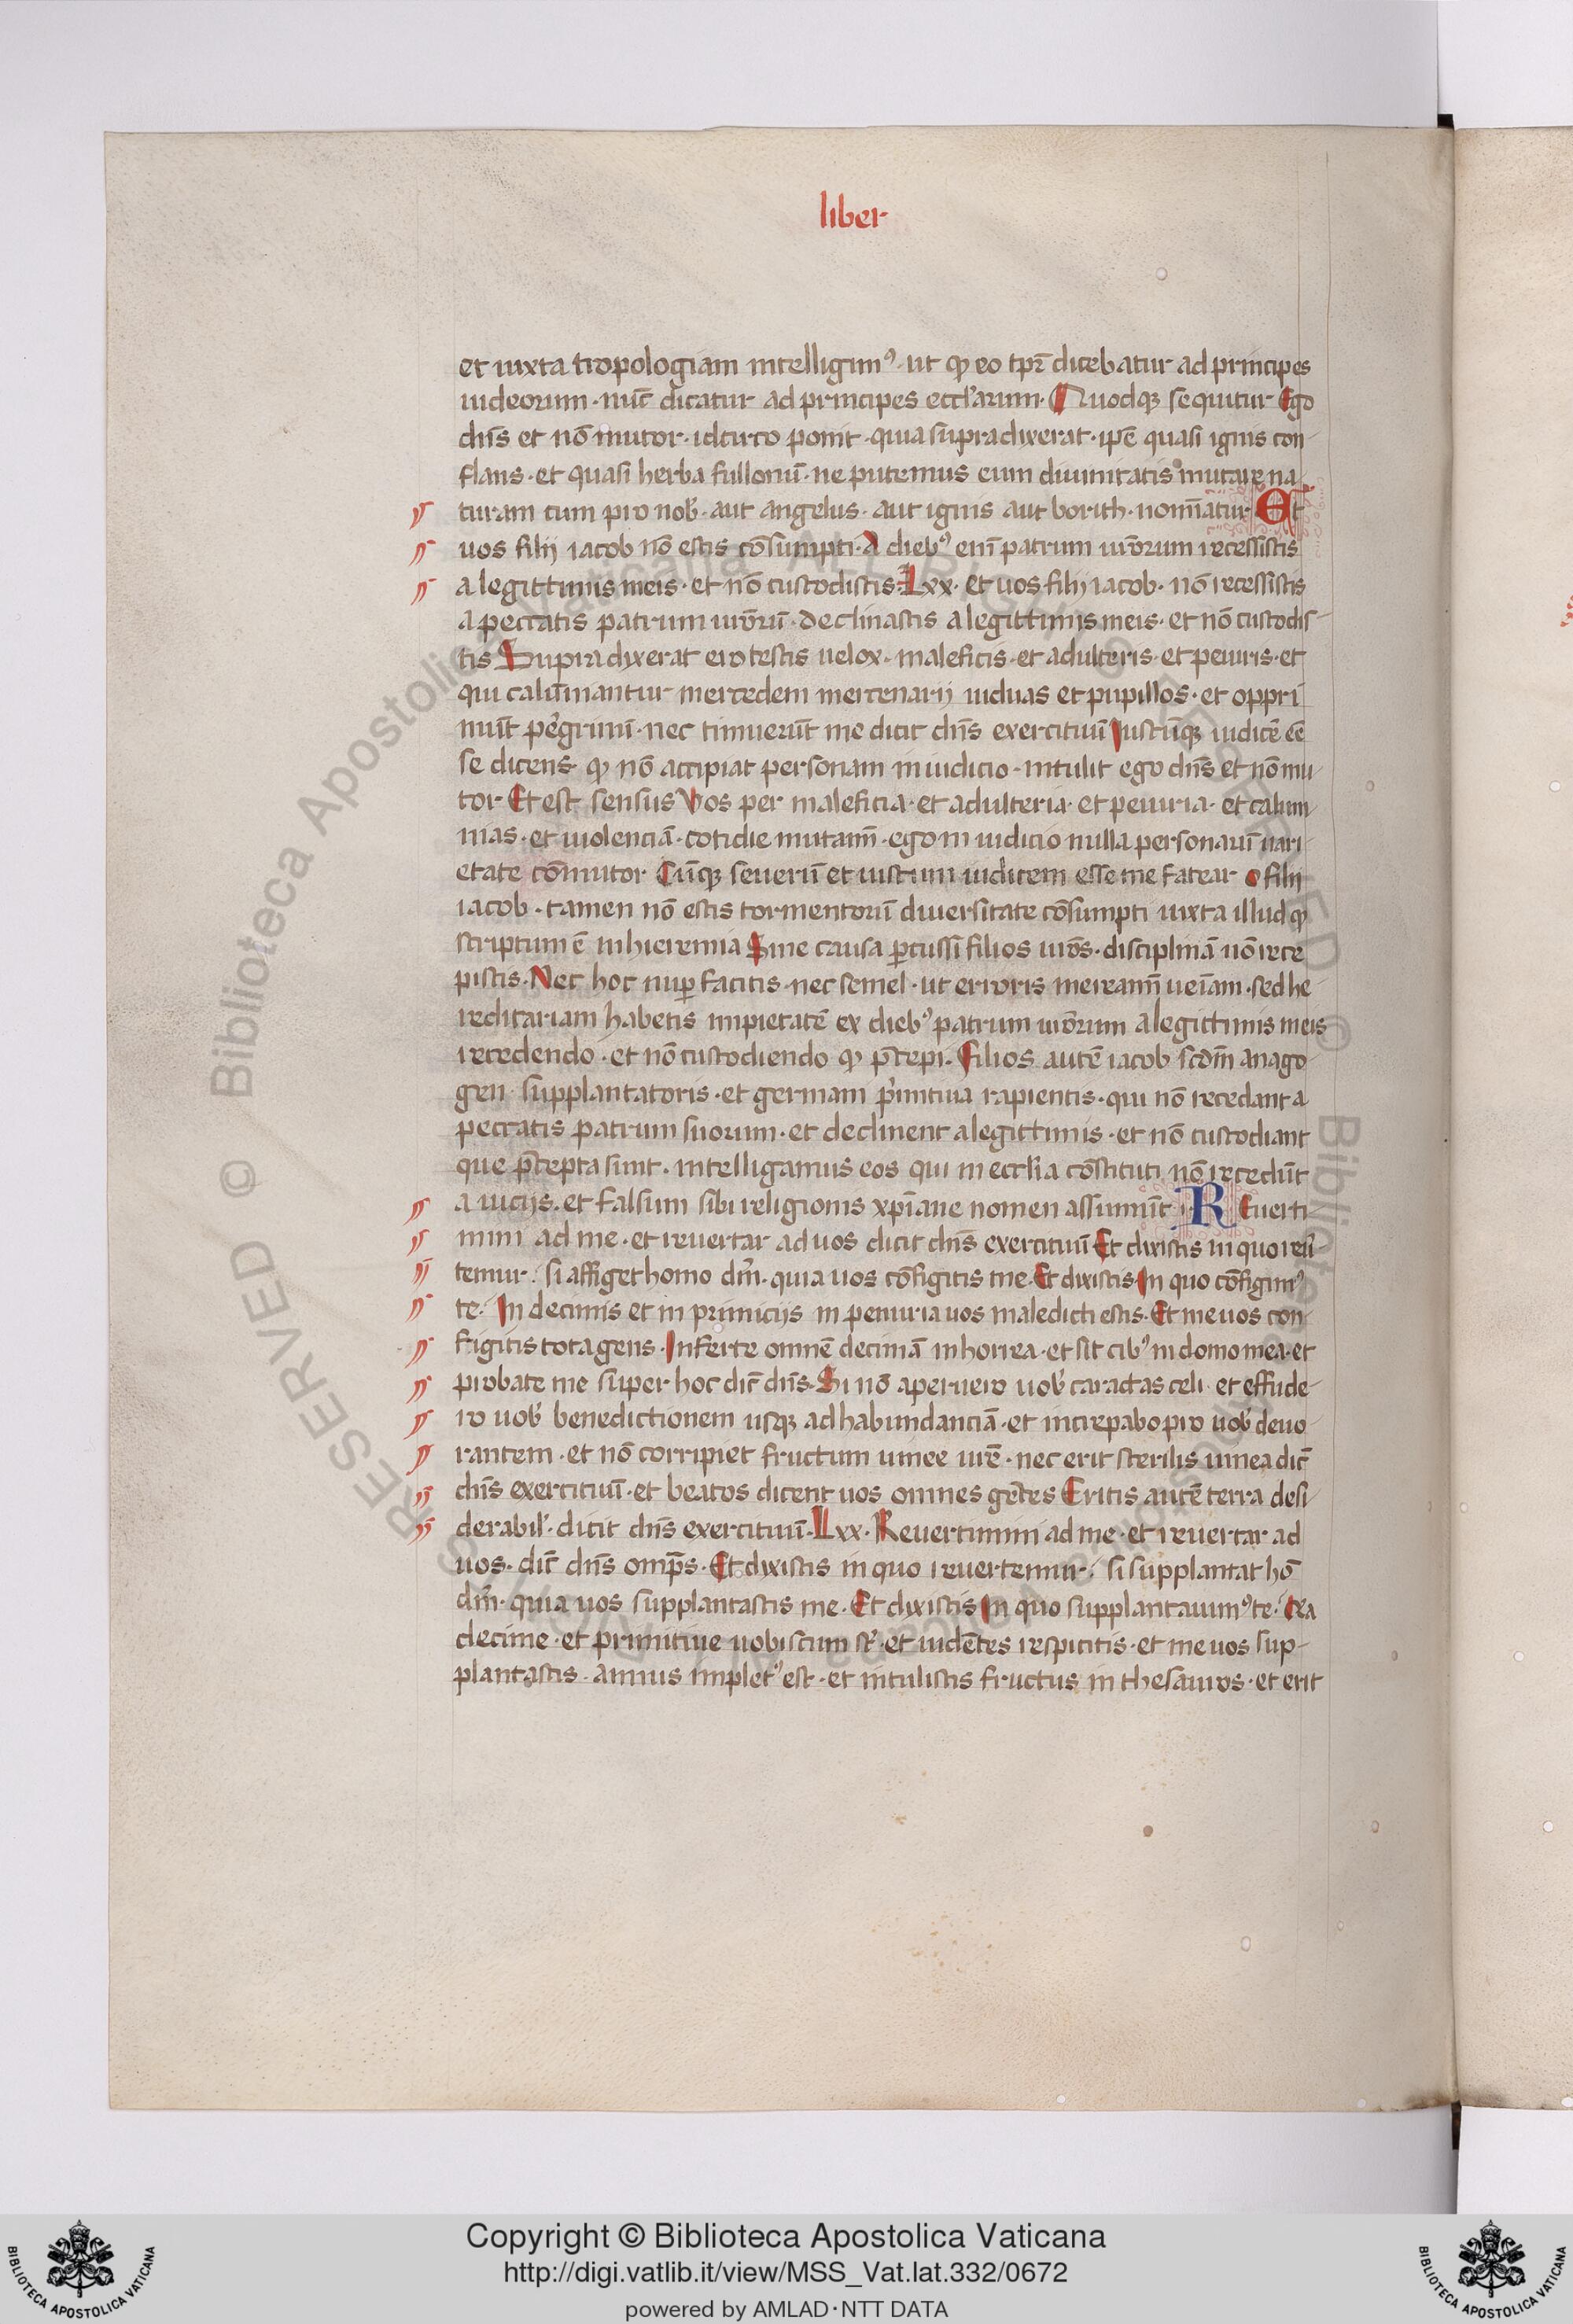 liber
et iuxta tropologiam intelligimꝰ · ut qd̾ eo tp̄r dicebatur ad principes
iudeorum · nūc dicatur ad principes eccl'iarum · Quodqꝫ sequitur Ego
dn̄s et nō mutor · idcirco ponit · quia supra dixerat · ip̄e quasi ignis con-
flans · et quasi herba fullonū · ne putemus eum diuinitatis mutare na-
turam cum pro nob' · aut angelus · aut ignis aut borith · nomīatur Et
uos filij iacob nō estis cōsumpti · A diebꝰ enī patrum ur̄orum recessistis
a legittimis meis · et nō custodistis · Lxx · et uos filij iacob · nō recessistis
a peccatis patrum ur̄orū · declinastis a legittimis meis · et nō custodis-
tis Supra dyxerat ero testis uelox · maleficis · et adulteris · et peiuris · et
qui calūmiantur mercedem mercenarij uiduas et pupillos · et oppri
mūt peregrinū · nec timuerūt me dicit dn̄s exercituū Iustūqꝫ iudicē eē
se dicens qd̾ nō accipiat personam in iudicio · intulit ego dn̄s et nō mu-
tor · Et est sensus Vos per maleficia · et adulteria · et peiuria · et calum-
nias · et uiolenciā · cotidie mutam̄ · ego in iudicio nulla personarū uari-
etate cōmutor Cūqꝫ seuerū et iustum iudicem esse me fatear o filij
iacob · tamen nō estis tormentorū diuersitate cōsumpti iuxta illud qd̾
scriptum ē in hieremia Sine causa ꝑcussi filios ur̄os · disciplinā nō rece
pistis · Nec hoc nuꝑ facitis · nec semel · ut erroris mereamī ueīam · sed he-
reditariam habetis impietatē ex diebꝰ patrum ur̄orum a legittimis meis
recedendo · et nō custodiendo qd̾ p̄cepi · Filios autē iacob scd̄m anago-
gen supplantatoris · et germani p'mitiua rapientis · qui nō recedant a
peccatis patrum suorum · et declinent a legittimis · et nō custodiant
que p̄cepta sunt · intelligamus eos qui in eccl'ia cōstituti nō recedūt
a uicijs · et falsum sibi religionis xp̄iane nomen assumūt · Reuerti
mini ad me · et reuertar ad uos dicit dn̄s exercituū Et dixistis in quo reu'-
temur · si affiget homo dm̄ · quia uos cōfigitis me · Et dixistis · In quo cōfigimꝰ
te · In decimis et in primicijs in penuria uos maledicti estis · Et me uos con-
figitis tota gens · Inferte omnē decimā in horrea · et sit cibꝰ in domo mea · et
probate me super hoc dic̄ dn̄s · Si nō aperuero uob' caractas celi et effude-
ro uob' benedictionem usqꝫ ad habundanciā · et increpabo pro uob' deuo-
rantem · et nō corripiet fructum uinee ur̄e · nec erit sterilis uinea dic̄
dn̄s exercituū · et beatos dicent uos omnes gētes Eritis autē terra desi-
derabil' · dicit dn̄s exercituū · Lxx · Reuertimini ad me · et reuertar ad
uos · dic̄ dn̄s omp̄s · Et dixistis in quo reuertemur · si supplantat hō
dm̄ · quia uos supplantastis me · Et dixistis In quo supplantauimꝰ te ·
decime · et primitiue uobiscum st' · et uidētes respicitis · et me uos sup-
plantastis · annus impletꝰ est · et intulistis fructus in thesauros · et erit
© Biblioteca Apostolica Vaticana ALL RIGHTS RESERVED © Biblioteca Apostolica Vaticana ALL RIGHTS RESERVED
Copyright © Biblioteca Apostolica Vaticana
http://digi.vatlib.it/view/MSS_Vat.lat.332/0672
powered by AMLAD·NTT DATA
BIBLIOTECA APOSTOLICA VATICANA
BIBLIOTECA APOSTOLICA VATICANA